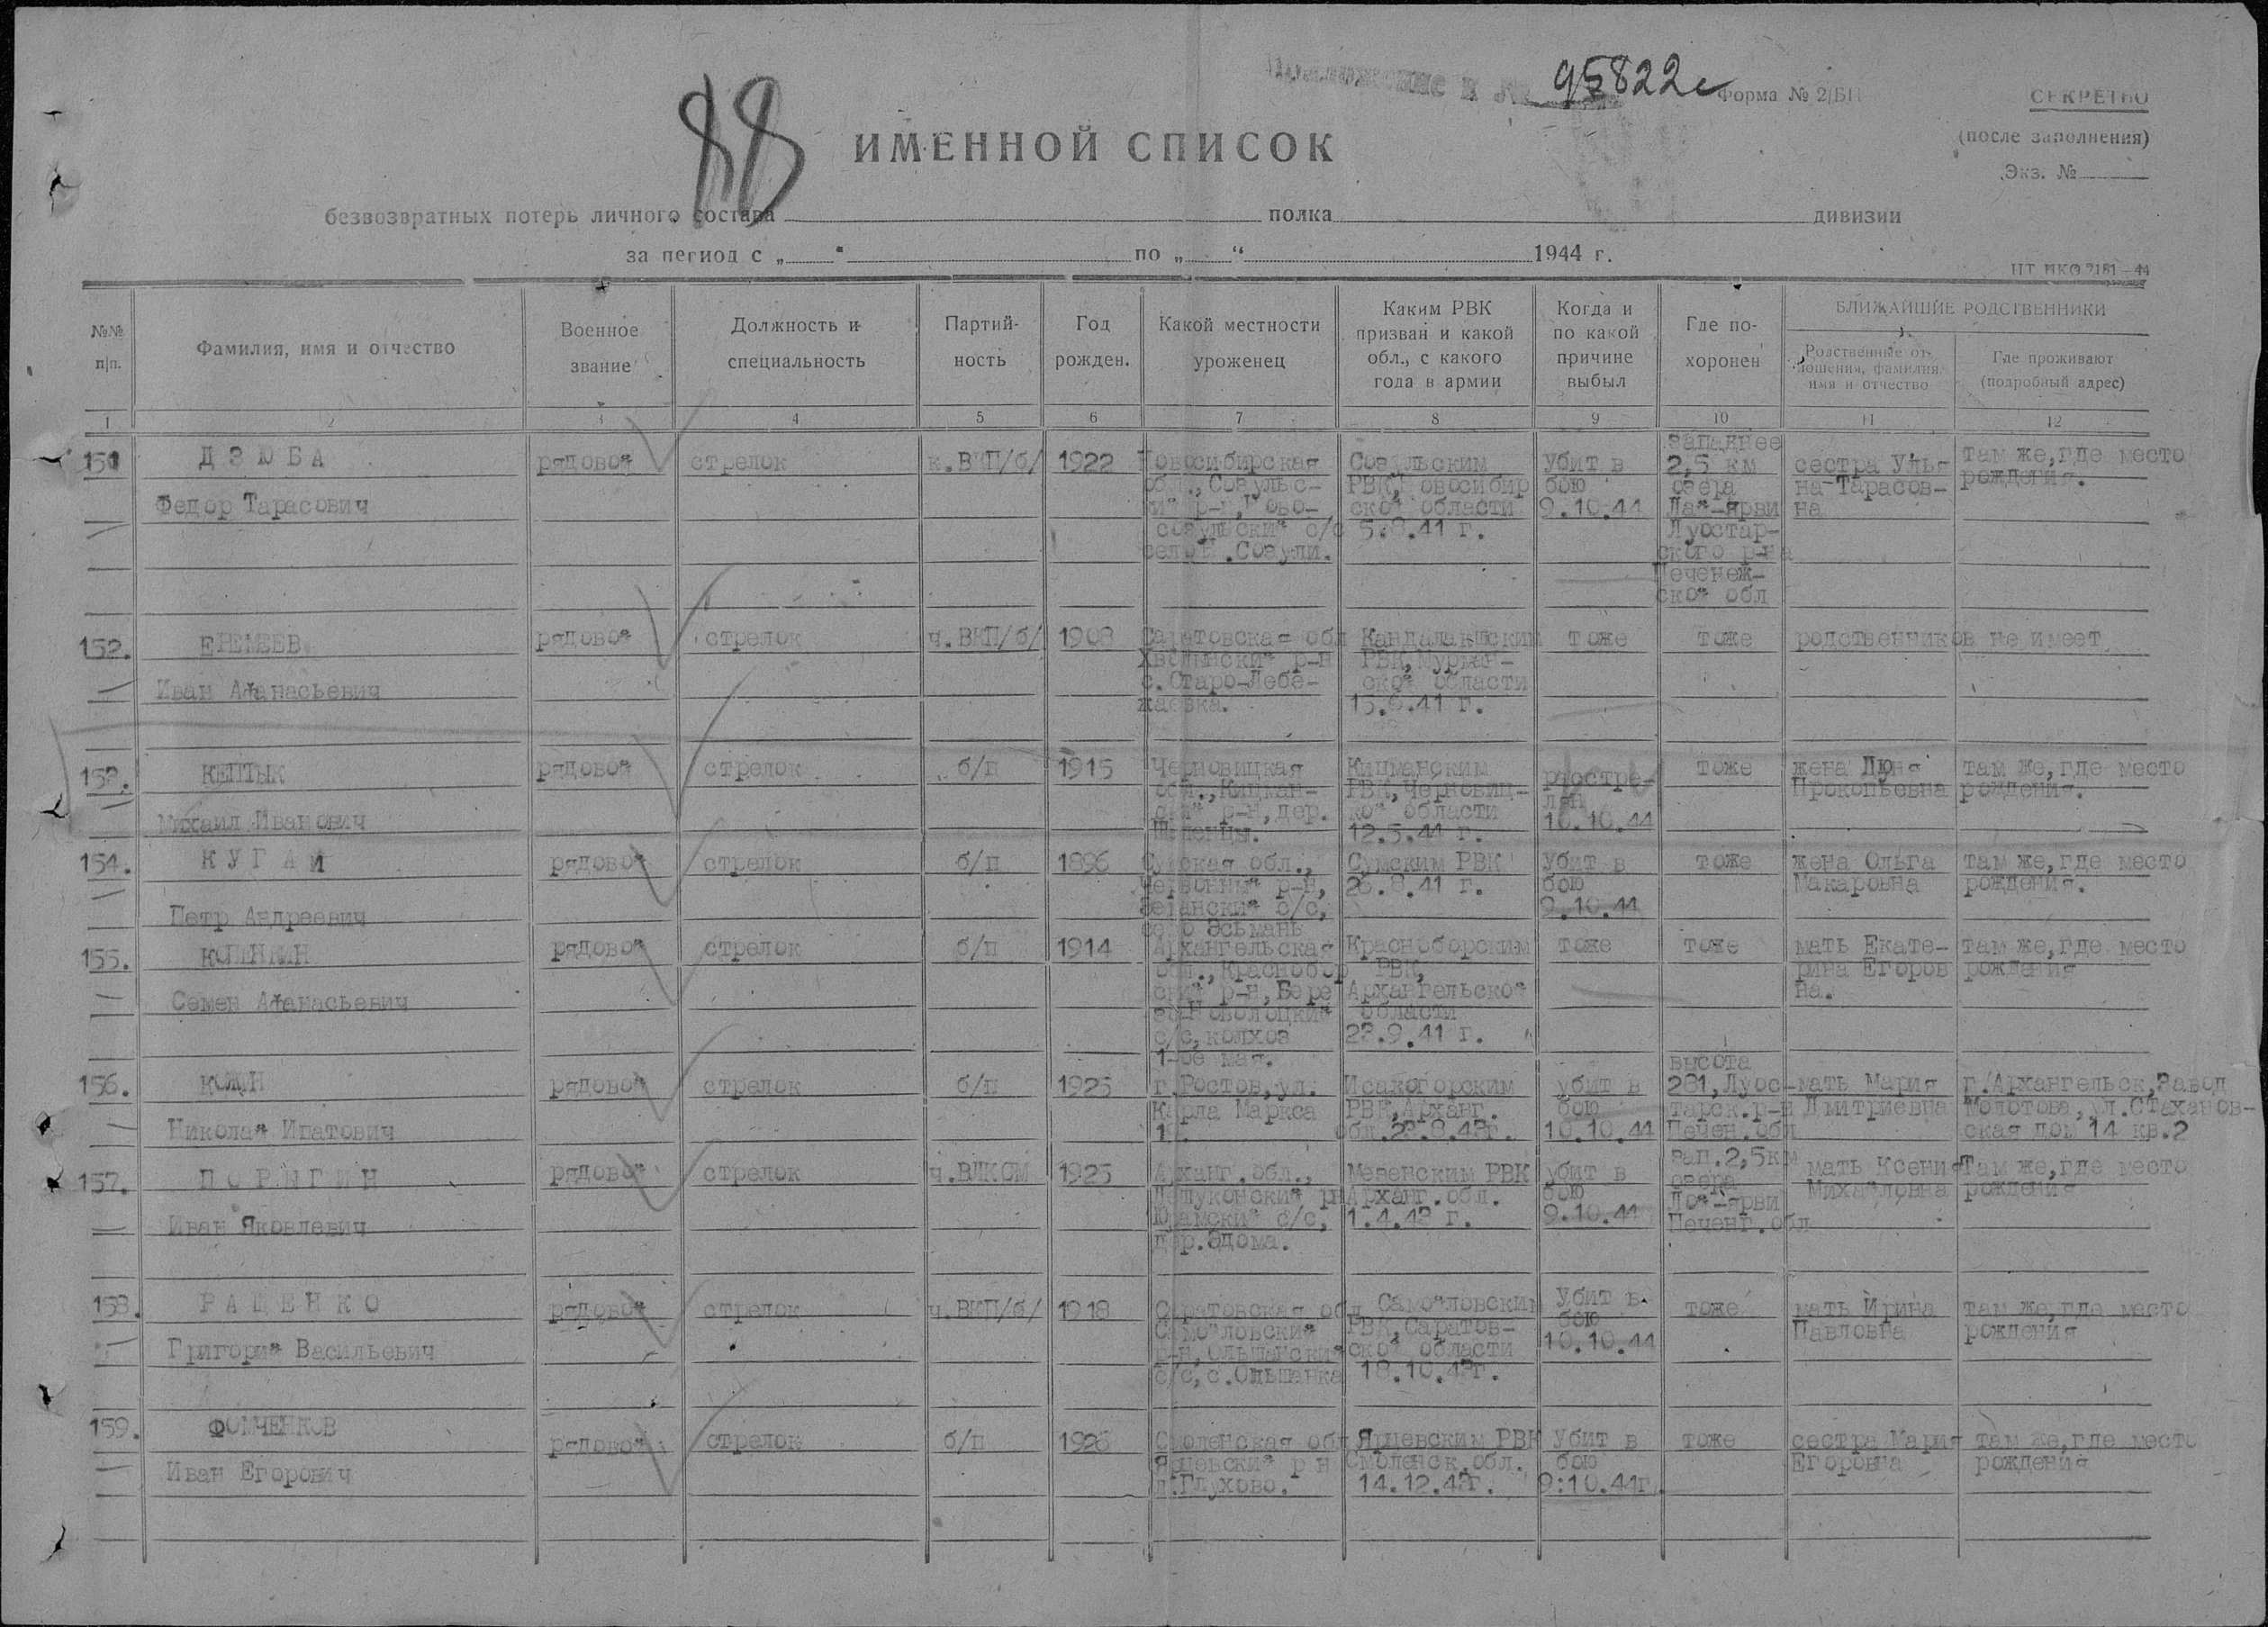 88
Приложение к № 95822с
Форма № 2/БП
СЕКРЕТНО
(после заполнения)
Экз. №
ИМЕННОЙ СПИСОК
безвозвратных потерь личного состава полка дивизии
за период с „ “ по „ “ 1944 г.
№№ п/п.
Фамилия, имя и отчество
Военное звание
Должность и специальность
Партий-ность
Год рожден.
Какой местности уроженец
Каким РВК призван и какой обл., с какого года в армии
Когда и по какой причине выбыл
Где по-хоронен
БЛИЖАЙШИЕ РОДСТВЕННИКИ
Родственные от-ношения, фамилия, имя и отчество
Где проживают (подробный адрес)
1 2 3 4 5 6 7 8 9 10 11 12
151 ДЗЮБА
Федор Тарасович
рядовой стрелок к.ВКП/б/ 1922
Новосибирская
обл.,
р-н,
с/с
РВК, Новосибир
ской области
41 г.
убит в
бою
9.10.44
западнее
2,5 км
озера
Лай-Ярви
Луостар-
ского р-на
Печенеж-
ской обл
сестра Уль-
на Тарасов-
на
там же, где место
рождения.
152. ЕРЕМЕЕВ
Иван Афанасьевич
рядовой стрелок ч.ВКП/б/ 1908
Саратовская обл
Хвалынский р-н
с.Старо-Лебе-
жаевка.
Кандалакшским
РВК, Мурман-
ской области
41 г.
тоже тоже
родственников не имеет
153. КЕПТЫК
Михаил Иванович
рядовой стрелок б/п 1915
Черновицкая
обл., Кицман-
ский р-н, дер.
Кицманским
РВК, Черновиц-
кой области
12.5.44 г.
расстре-
лян
10.10.44
тоже
жена Дуня
Прокопьевна
там же, где место
рождения.
154. КУГАЙ
Петр Андреевич
рядовой стрелок б/п 1896
Сумская обл.,
Червонный р-н,
с/с,
село Эсьмань
Сумским РВК
41 г.
убит в
бою
9.10.44
тоже
жена Ольга
Макаровна
там же, где место
рождения.
155. КОПЕНКИН
Семен Афанасьевич
рядовой стрелок б/п 1914
Архангельская
обл., Краснобор
ский р-н,
с/с, колхоз
1-ое мая.
Красноборским
РВК,
Архангельской
области
9.41 г.
тоже тоже
мать Екате-
рина Егоров
на.
там же, где место
рождения
156. КОЖИН
Николай Ипатович
рядовой стрелок б/п 1925
г.Ростов, ул.
Карла Маркса
Исакогорским
РВК, Арханг.
обл.
убит в
бою
10.10.44
высота
281, Луос-
тарск.р-н
Печен.обл
мать Мария
Дмитриевна
г.Архангельск, Завод
Молотова, ул.Стаханов-
ская дом 14 кв.2
157. ПОРЫГИН
Иван Яковлевич
рядовой стрелок ч.ВЛКСМ 1925
Арханг.обл.,
Лешуконский рн
с/с,
дер.Эдома.
Мезенским РВК
Арханг.обл.
1.4.43 г.
убит в
бою
9.10.44
зап.2,5км
озера
Лой-Ярви
Печенг.обл
мать Ксения
Михайловна
Там же, где место
рождения
158. РАЩЕНКО
Григорий Васильевич
рядовой стрелок ч.ВКП/б/ 1918
Саратовская обл
Самойловский
р-н, Ольшанский
с/с, с.Ольшанка
Самойловским
РВК, Саратов-
ской области
Убит в
бою
10.10.44
тоже
мать Ирина
Павловна
там же, где место
рождения
159. ФОМЧЕНКОВ
Иван Егорович
рядовой стрелок б/п 1926
Смоленская обл
Ярцевский р н
д.Глухово.
Ярцевским РВК
Смоленск.обл.
14.12.43г.
Убит в
бою
9:10.44г.
тоже
сестра Мария
Егоровна
там же, где место
рождения